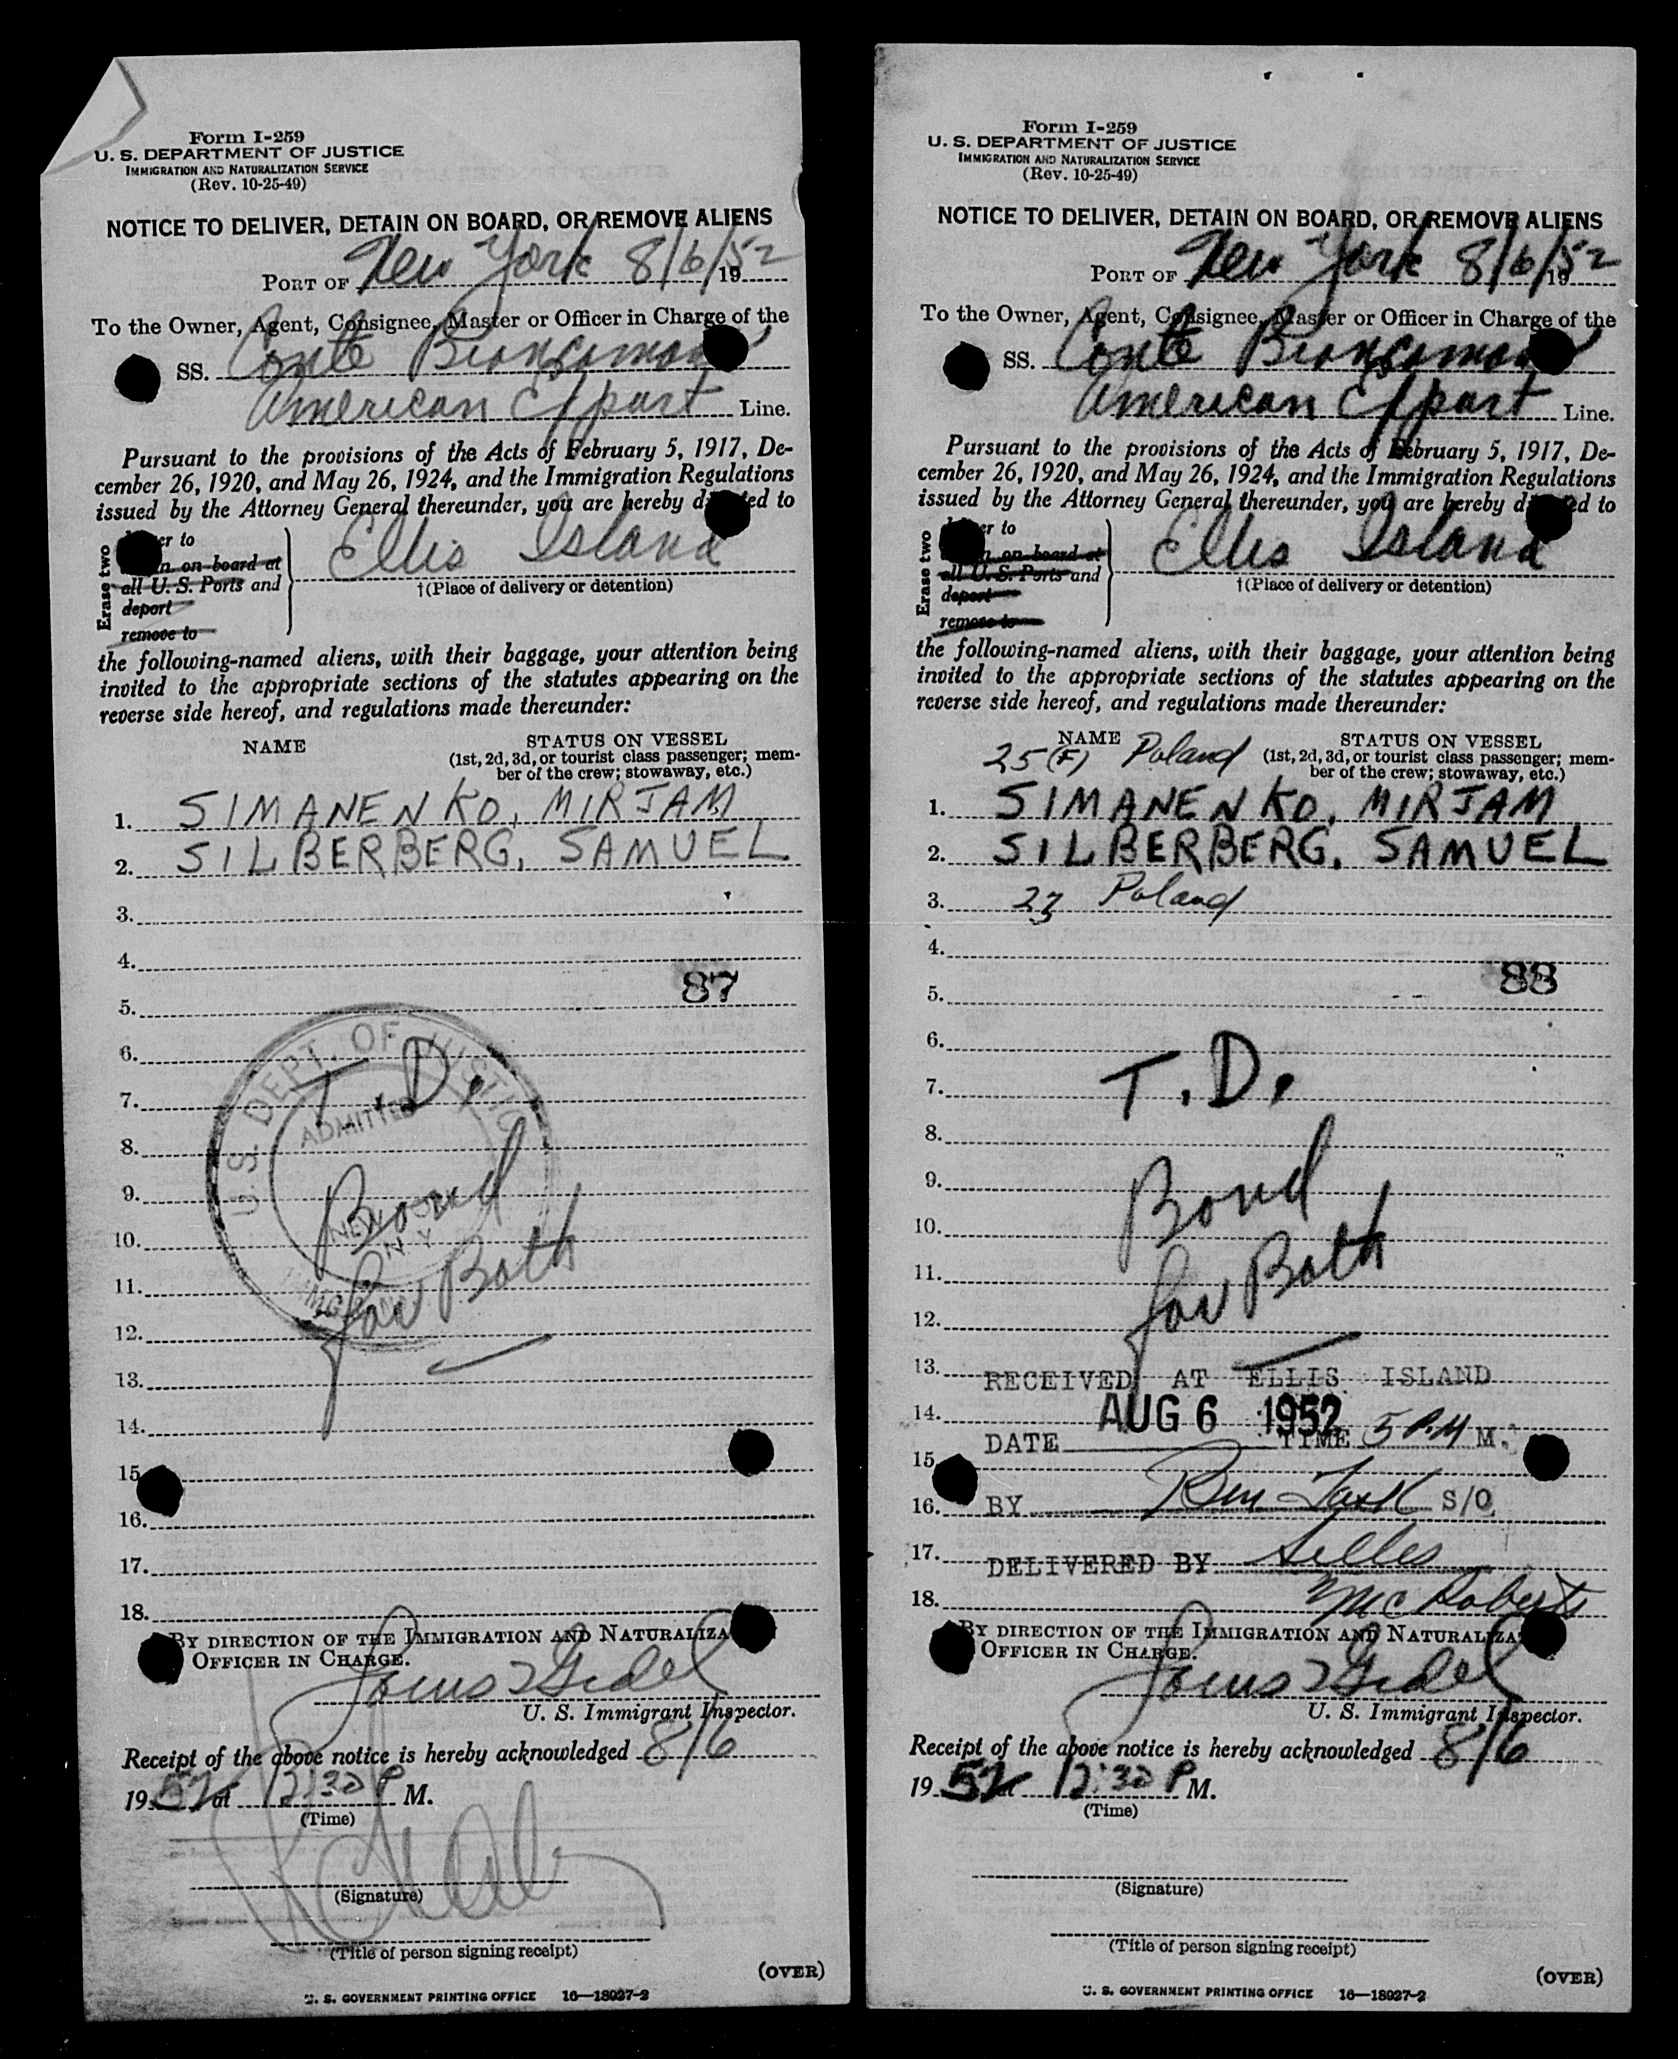 Form I-259
U. S. DEPARTMENT OF JUSTICE
IMMIGRATION AND NATURALIZATION SERVICE
(Rev. 10-25-49)
NOTICE TO DELIVER, DETAIN ON BOARD, OR REMOVE ALIENS
PORT OF New York 8/6/1952
To the Owner, Agent, Consignee, Master or Officer in Charge of the
SS. Conte Biancamano,
American Export Line.
Pursuant to the provisions of the Acts of February 5, 1917, De-
cember 26, 1920, and May 26, 1924, and the Immigration Regulations
issued by the Attorney General thereunder, you are hereby d ed to
Erase two
er to
n on board at
all U. S. Ports and
deport
remove to
Ellis Island
†(Place of delivery or detention)
the following-named aliens, with their baggage, your attention being
invited to the appropriate sections of the statutes appearing on the
reverse side hereof, and regulations made thereunder:
NAME
STATUS ON VESSEL
(1st, 2d, 3d, or tourist class passenger; mem-
ber of the crew; stowaway, etc.)
1. SIMANENKO, MIRJAM
2. SILBERBERG, SAMUEL
3.
4.
87
5.
6.
U.S. DEPT. OF JUSTICE
T.D.
7.
ADMITTED
8.
9. Bond
NEW
N Y
10.
11. for Both
12.
13.
14.
15.
16.
17.
18.
BY DIRECTION OF THE IMMIGRATION AND NATURALIZA
OFFICER IN CHARGE.
U. S. Immigrant Inspector.
Receipt of the above notice is hereby acknowledged 8/6
1952 at 12:30 P M.
(Time)
(Signature)
(Title of person signing receipt)
(OVER)
U. S. GOVERNMENT PRINTING OFFICE 16—18927-2
Form I-259
U. S. DEPARTMENT OF JUSTICE
IMMIGRATION AND NATURALIZATION SERVICE
(Rev. 10-25-49)
NOTICE TO DELIVER, DETAIN ON BOARD, OR REMOVE ALIENS
PORT OF New York 8/6/1952
To the Owner, Agent, Consignee, Master or Officer in Charge of the
SS. Conte Biancamano,
American Export Line.
Pursuant to the provisions of the Acts of February 5, 1917, De-
cember 26, 1920, and May 26, 1924, and the Immigration Regulations
issued by the Attorney General thereunder, you are hereby d ed to
Erase two
er to
n on board at
all U. S. Ports and
deport
remove to
Ellis Island
†(Place of delivery or detention)
the following-named aliens, with their baggage, your attention being
invited to the appropriate sections of the statutes appearing on the
reverse side hereof, and regulations made thereunder:
NAME
25 (F) Poland
STATUS ON VESSEL
(1st, 2d, 3d, or tourist class passenger; mem-
ber of the crew; stowaway, etc.)
1. SIMANENKO, MIRJAM
2. SILBERBERG, SAMUEL
3. 23 Poland
4.
88
5.
6.
7. T.D.
8.
9. Bond
10.
11. for Both
12.
13. RECEIVED AT ELLIS ISLAND
14. AUG 6 1952
DATE TIME 5 P.M M.
15.
16. BY Ben S/O
17. DELIVERED BY
18. McRoberts
BY DIRECTION OF THE IMMIGRATION AND NATURALIZA
OFFICER IN CHARGE.
U. S. Immigrant Inspector.
Receipt of the above notice is hereby acknowledged 8/6
1952 at 12:30 P M.
(Time)
(Signature)
(Title of person signing receipt)
(OVER)
U. S. GOVERNMENT PRINTING OFFICE 16—18927-2